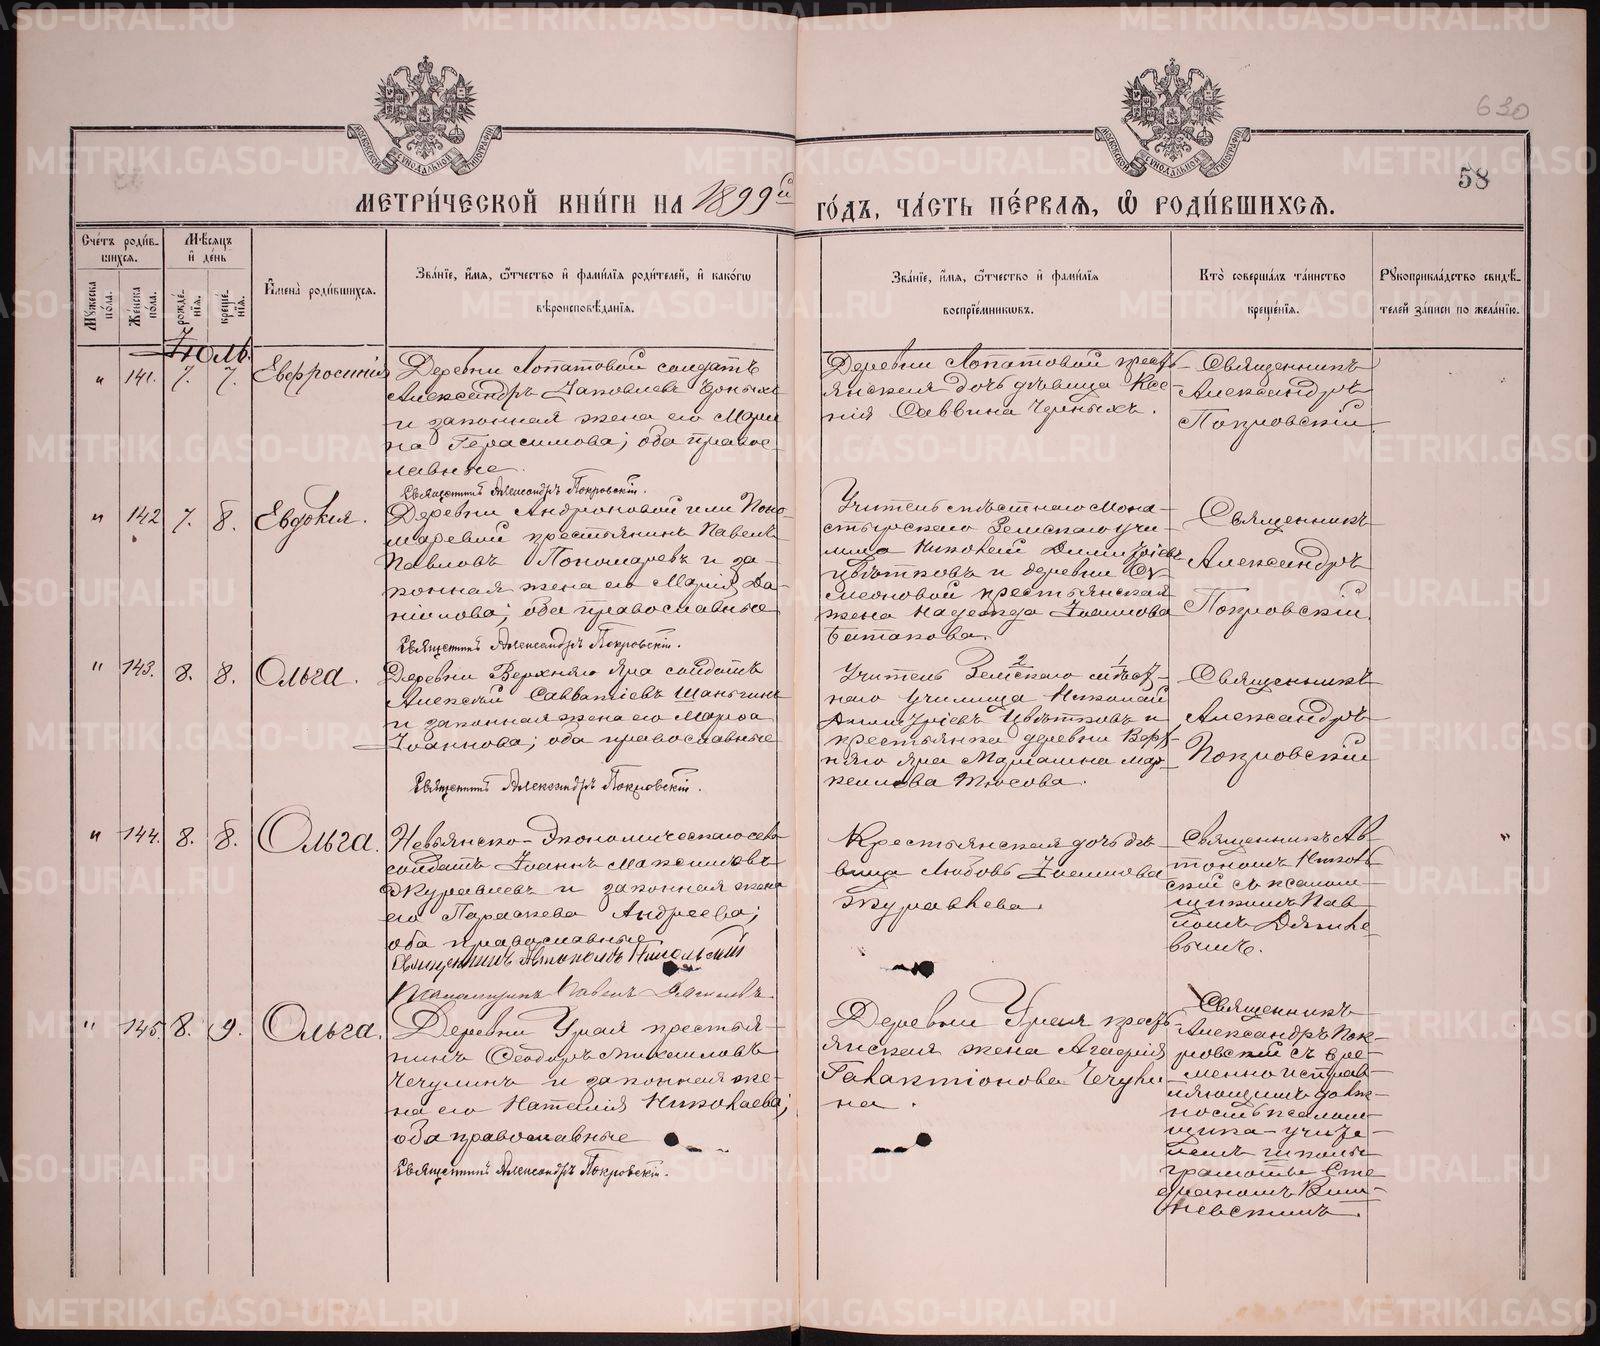 630
58
МЕТРИ́ЧЕСКОЙ КНИ́ГИ НА 1899й
ГО́ДЪ, ЧА́СТЬ ПЕ́РВАѦ, Ѽ РОДИ́ВШИХСѦ.
Сче́тъ роди́в-
шихся.
Мѣ́сяцъ
и҆ де́нь
Мꙋ́жеска по́ла.
Же́нска по́ла.
рожде́-нїѧ.
креще́-нїѧ.
И҆мена̀ роди́вшихся.
Зва́нїе, и҆́мѧ, ѻ҆́тчество и҆ фами́лїѧ роди́телей, и҆ како́гѡ
вѣроисповѣ́данїѧ.
Зва́нїе, и҆́мѧ, ѻ҆́тчество и҆ фами́лїѧ
воспрїе́мникѡвъ.
Кто̀ соверша́лъ та́инство
креще́нїѧ.
Рꙋкоприкла́дство свидѣ́-
телей за́писи по жела́нїю.
Іюль.
" 141. 7. 7. Евфросинія
Деревни Лопатовой солдатъ
Александръ Іаковлевъ Черныхъ
и законная жена его Мари
на Герасимова; оба правос
лавные.
Священникъ Александръ Покровскій.
Деревни Лопатовой кресть-
янская дочь дѣвица Ксе
нія Саввина Черныхъ.
Священникъ
Александръ
Покровскій
" 142 7. 8. Евдокія.
Деревни Андроновой или Поно
маревой крестьянинъ Павелъ
Павловъ Пономаревъ и за-
конная жена его Марія Да-
нилова; оба православные
Священникъ Александръ Покровскій.
Учитель мѣстнаго Мона-
стырскаго Земскаго учи-
лища Николай Димитріевъ
Цвѣтковъ и деревни Си
меоновой крестьянская
жена Надежда Іоаннова
Баталова.
Священникъ
Александръ
Покровскій.
" 143. 8. 8. Ольга.
Деревни Верхняго Яра солдатъ
Алексѣй Савватіевъ Шаньгинъ
и законная жена его Марѳа
Іоаннова; оба православные
Священникъ Александръ Покровскій.
Учитель 2 Земскаго 1 мѣст-
наго училища Николай
Димитріевъ Цвѣтковъ и
крестьянка деревни Верх
няго Яра Маріамна Мар-
келлова Тюсова.
Священникъ
Александръ
Покровскій
" 144. 8. 8. Ольга.
Невьянско-Экономическаго села
солдатъ Іоаннъ Максимовъ
Журавлевъ и законная жена
его Параскева Андреева;
оба православные
Священникъ Автономъ Никольскій
Псаломщикъ Павелъ
Крестьянская дочь дѣ-
вица Любовь Іоаннова
Журавлева.
Священникъ Ав
тономъ Николь
скій съ псалом-
щикомъ Пав
ломъ
" 145. 8. 9. Ольга.
Деревни Умая крестья-
нинъ Ѳеодоръ Михаиловъ
Чечулинъ и законная же-
на его Наталія Николаева;
оба православные
Священникъ Александръ Покровскій.
Деревни Умая кресть-
янская жена Агаѳія
Галактіонова Чечули-
на.
Священникъ
Александръ Пок-
ровскій съ вре-
менно исправ-
ляющимъ долж-
ность псалом-
щика-учите-
лемъ школы
грамоты Сте
фаномъ Виш-
невскимъ.
METRIKI.GASO-URAL.RU